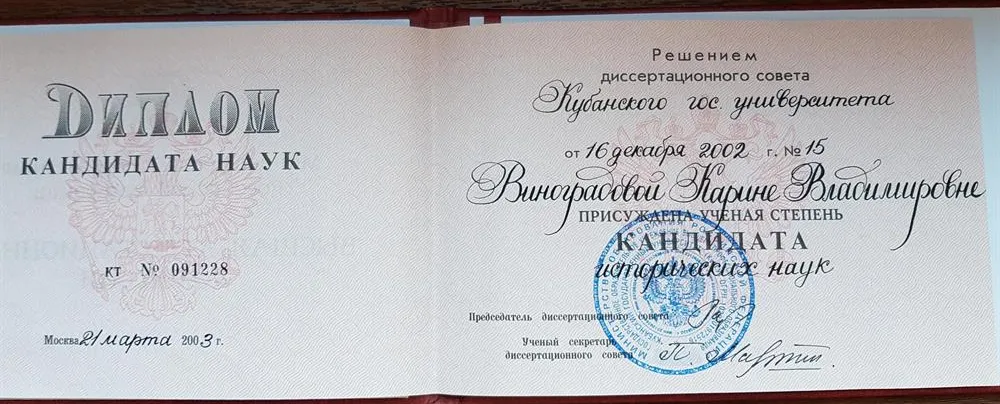 ДИПЛОМ
КАНДИДАТА НАУК
КТ № 091228
Москва 21 марта 2003 г.
Решением
диссертационного совета
Кубанского гос. университета
от 16 декабря 2002 г. № 15
Виноградовой Карине Владимировне
ПРИСУЖДЕНА УЧЕНАЯ СТЕПЕНЬ
КАНДИДАТА
исторических наук
Председатель диссертационного совета
Ученый секретарь
диссертационного совета